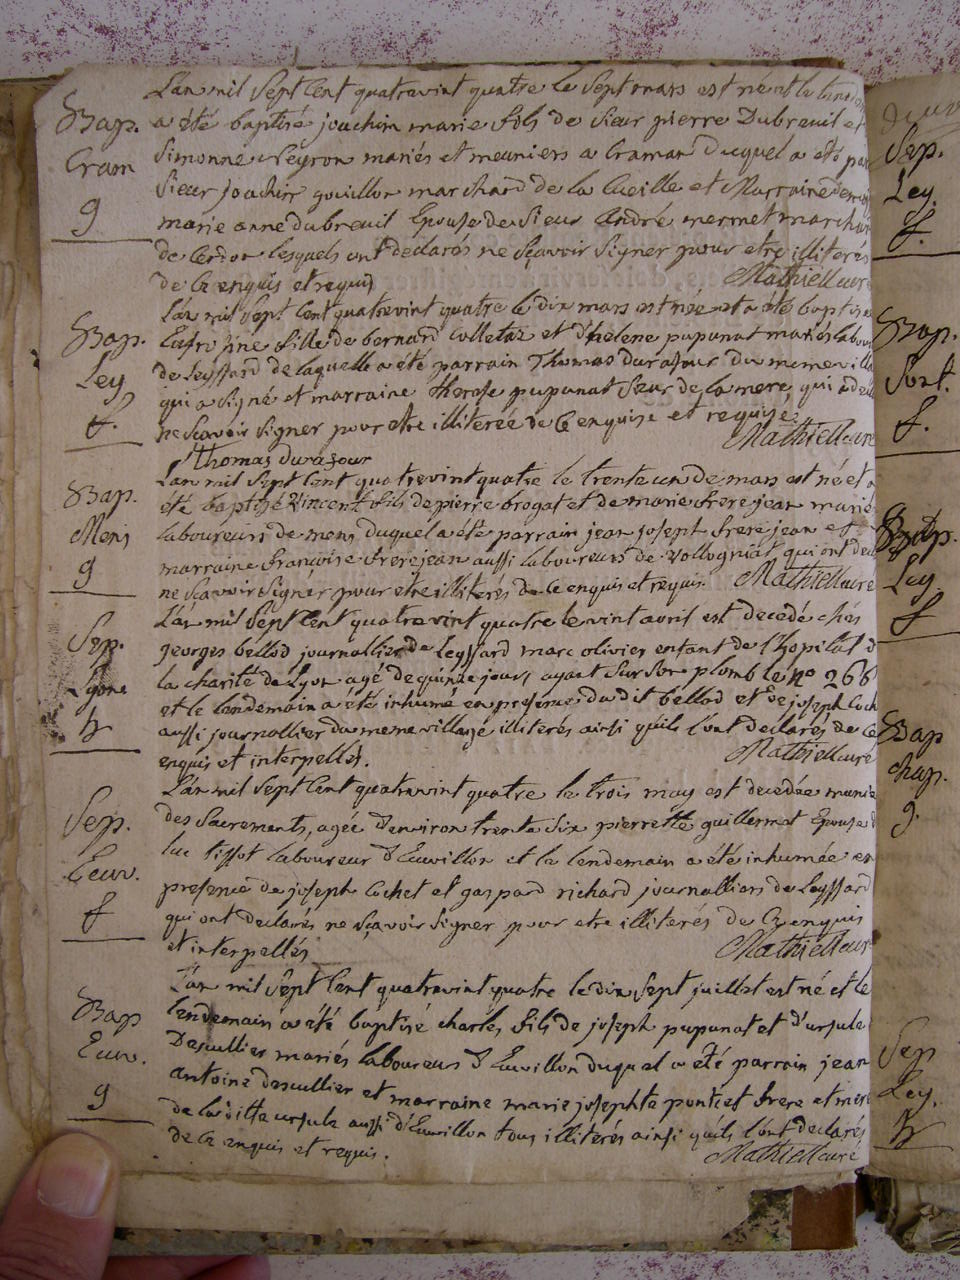 L'an mil Sept Cent quatrevint quatre le Sept mars est né et le lendem
Bap. a été baptisé joachim marie fils de Sieur pierre Dubreuil et
Cram Simonne Neyron mariés et meuniers a Craman Duquel a été par
Sieur joachim gouillon marchand de la Cueille et Marraine dem
g marie anne dubreuil Epouse de Sieur André mermet marchan
de Cerdon lesquels ont declarés ne Sçavoir Signer pour etre illiterés
de Ce enquis et requis Mathieu curé
L'an mil Sept Cent quatrevint quatre le dix mars est née et a été baptisée
Bap. Eufrosine fille de bernard Colletaz et d'helene pupunat mariés labou
Ley de Leyssard de laquelle a été parrain Thomas durafour du meme villa
qui a signé et marraine therese pupunat Sœur de la mere qui a decl
f. ne Scavoir Signer pour etre illiterée de Ce enquise et requise Mathieu curé
Thomas durafour
L'an mil Sept Cent quatrevint quatre le trente un de mars est né et a
Bap. été baptisé Vincent fils de pierre brogat et de marie frere jean mariés
Mens laboureurs de mens duquel a été parrain jean joseph frere jean et
marraine françoise frere jean aussi laboureurs de Vollogniat qui ont decl
g ne Scavoir Signer pour etre illiterés de Ce enquis et requis. Mathieu curé
L'an mil Sept Cent quatrevint quatre le vint avril est decedé chés
Sep. georges bellod journallier de Leyssard marc olivier enfant de l'hopital d
Lyons la charité de Lyon agé de quinze jours ayant Sur Son plomb le no 266
et le lendemain a été inhumé en presence du dit bellod et de joseph Coch
h aussi journallier du meme village illiterés ainsi qu'ils l'ont declarés de Ce
enquis et interpellés. Mathieu curé
L'an mil Sept Cent quatrevint quatre le trois may est decedée munie
Sep. des Sacrements, agée d'environ trente Six pierrette guillermot Epouse d
luc tissot laboureur d'Euvillon et le lendemain a été inhumée en
Eeuv. presence de joseph Cochet et gaspard richard journalliers de Leyssard
f qui ont declarés ne Sçavoir Signer pour etre illiterés de Ce enquis
et interpellés Mathieu curé
L'an mil Sept Cent quatrevint quatre le dix Sept juillet est né et le
Bap lendemain a été baptisé charles fils de joseph pupunat et d'ursule
Euv. Descullier mariés laboureurs d'Euvillon duquel a été parrain jean
antoine descullier et marraine marie josephte pontet frere et mere
g de la ditte ursule aussi d'Euvillon tous illiterés ainsi quils l'ont declarés
de Ce enquis et requis. Mathieu curé
Sep.
Ley.
f.
Bap.
Sort.
f.
Bap.
Ley
f
Bap
chap.
g.
Sep
Ley.
h